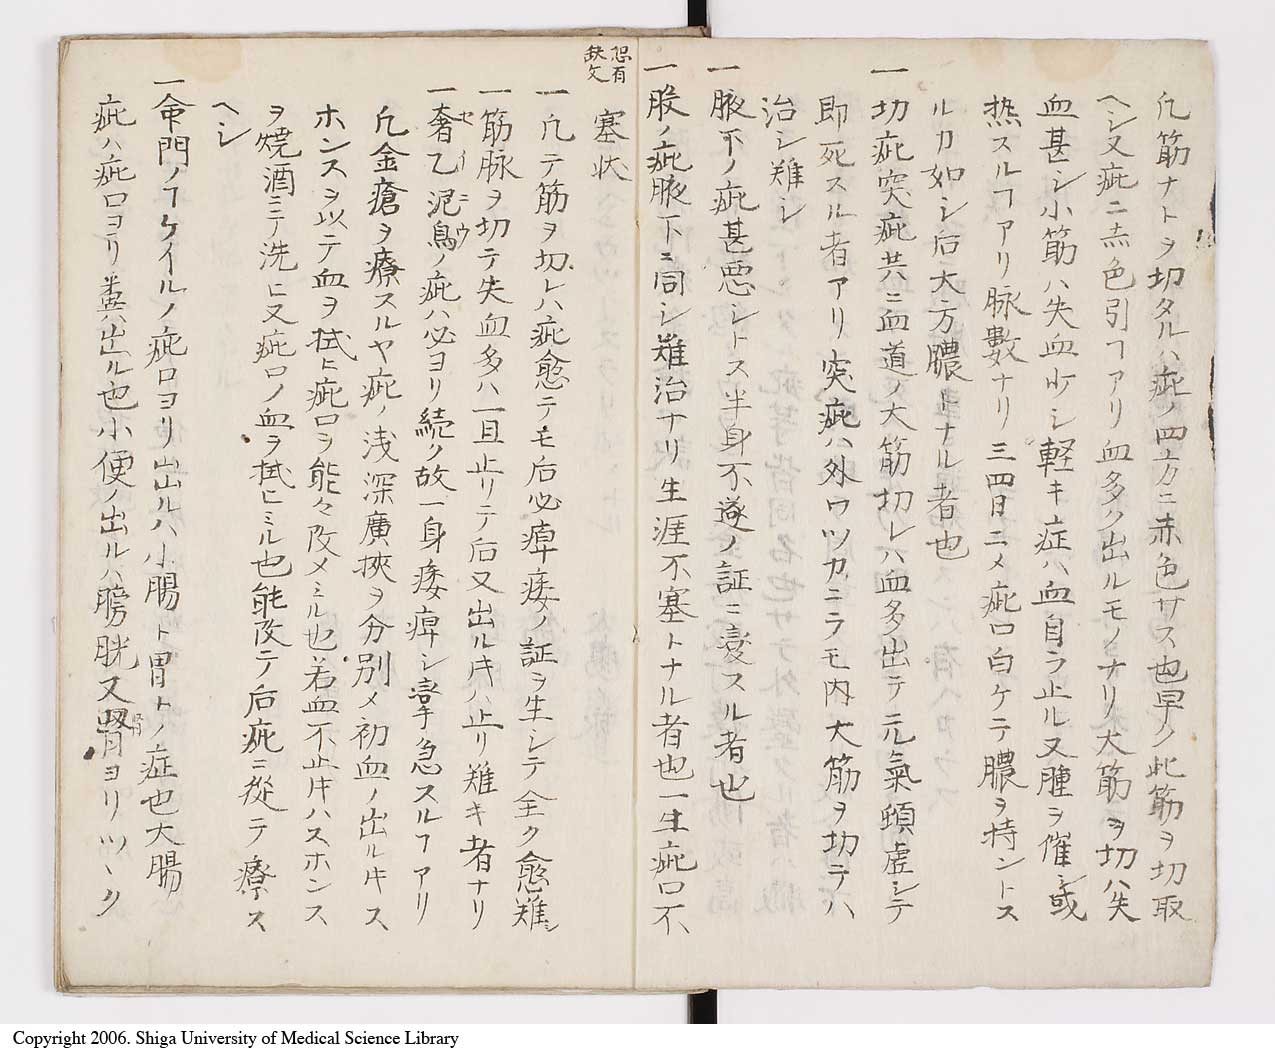 凢筋ナトヲ切タルハ疵ノ四方ニ赤色サス也早ク此筋ヲ切取
ヘシ又疵ニ赤色引ヿアリ血多ク出ルモノナリ大筋ヲ切ハ失
血甚シ小筋ハ失血少シ軽キ症ハ血自ラ止ル又腫ヲ催シ或
熱スルヿアリ脉數ナリ三四日ニメ疵口白ケテ膿ヲ持ントス
ルカ如シ后大方膿トナル者也
一切疵突疵共ニ血道ノ大筋切レハ血多出テ元氣頓虚シテ
即死スル者アリ突疵ハ外ワツカニラモ内大筋ヲ切テハ
治シ難シ
一腋下ノ疵甚悪シトス半身不遂ノ証ニ変スル者也
一股ノ疵腋下ニ同シ難治ナリ生涯不塞トナル者也一生疵口不
恐有
缺文
塞状
一凢テ筋ヲ切レハ疵愈テモ后必痺痿ノ証ヲ生シテ全ク愈難シ
一筋脉ヲ切テ失血多ハ一旦止リテ后又出ル𪜈ハ止リ難キ者ナリ
一奢乙泥鳥ノ疵ハ必ヨリ続ク故一身痿痺シ拏急スルヿアリ
セイニウ
凢金瘡ヲ療スルヤ疵ノ浅深廣挾ヲ分別メ初血ノ出ル𪜈ス
ホンスヲ以テ血ヲ拭ヒ疵口ヲ能々改メミル也若血不止𪜈ハスホンス
ヲ焼酒ニテ洗ヒ又疵口ノ血ヲ拭ヒミル也能改テ后疵ニ從テ療ス
ヘシ
一命門ノワケイルノ疵口ヨリ出ルハ小腸ト胃トノ症也大腸
疵ハ疵口ヨリ糞出ル也小便ノ出ルハ膀胱又腎ヨリツヽク
Copyright 2006. Shiga University of Medical Science Library